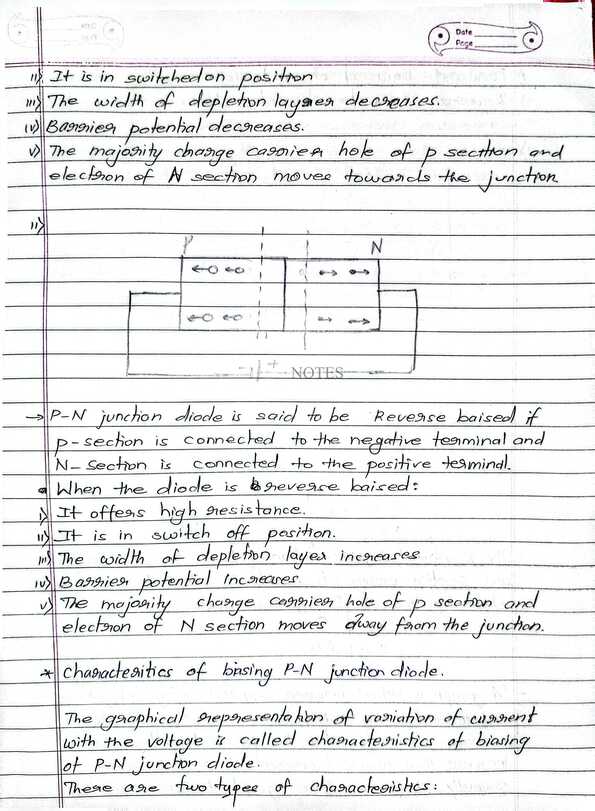 Date
Page
ii) It is in switched on position
iii) The width of depletion layer decreases.
iv) Barrier potential decreases.
v) The majority charge carrier hole of p section and
electron of N section moves towards the junction.
ii)
P N
- +
NOTES
→ P-N junction diode is said to be Reverse baised if
p-section is connected to the negative terminal and
N-section is connected to the positive terminal.
When the diode is reverse baised:
i) It offers high resistance.
ii) It is in switch off position.
iii) The width of depletion layer increases
iv) Barrier potential Increases
v) The majority charge carrier hole of p section and
electron of N section moves away from the junction.
* Characteritics of biasing P-N junction diode.
The graphical representation of variation of current
with the voltage is called characteristics of biasing
of P-N junction diode.
There are two types of characteristics: